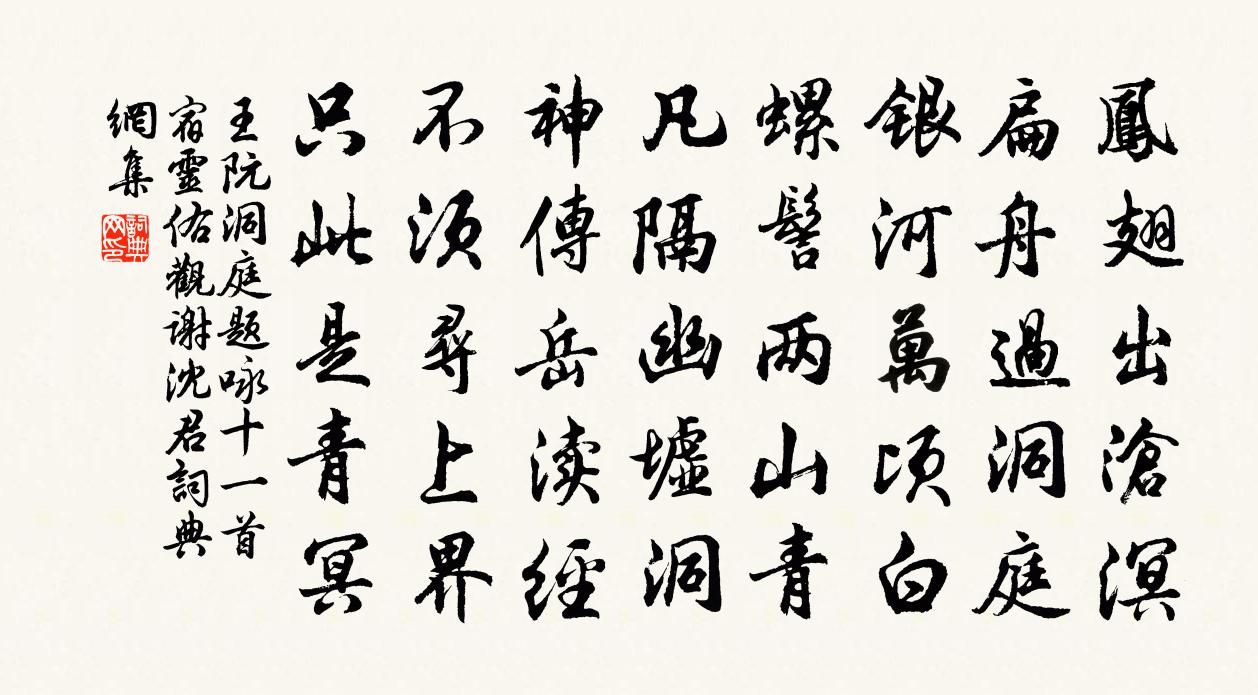 鳳翅出滄溟
扁舟過洞庭
銀河萬頃白
螺髻兩山青
凡隔幽墟洞
神傳岳渎經
不須尋上界
只此是青冥
王阮洞庭题咏十一首
宿靈佑觀謝沈君詞典
網集
詞典
网印